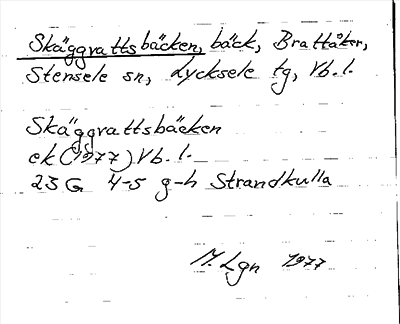 Skäggvattsbäcken, bäck, Brattåker,
Stensele sn, Lycksele tg, Vb. l.
Skäggvattsbäcken
ek (1977) Vb. l.
23 G 4-5 g-h Strandkulla
M. Lgn 1977